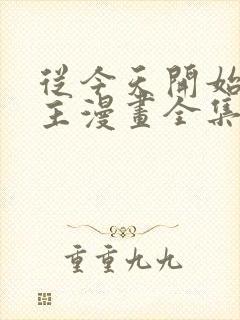 從今天開始
主漫畫全集
重重九九